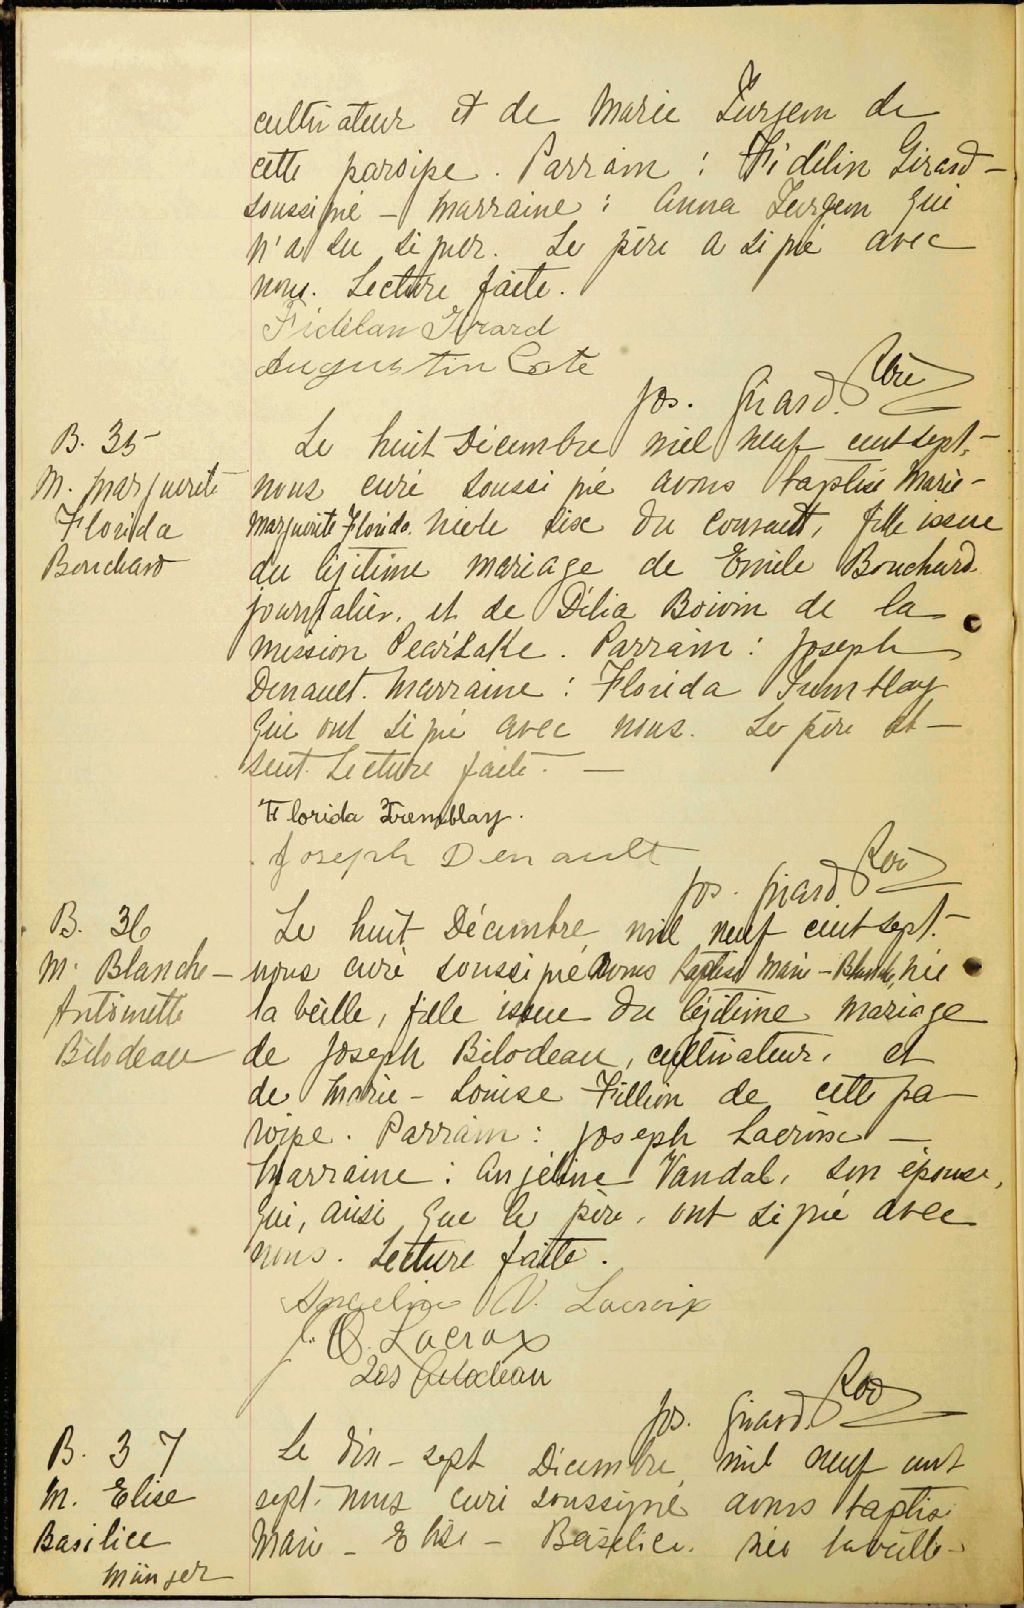 cultivateur et de Marie Turgeon de
cette paroisse. Parrain : Fidélin Girard -
soussigné - Marraine : Anna Turgeon qui
n'a su signer. Le père a signé avec
nous. Lecture faite.
Fidélan Girard
Augustin Coté
Jos. Girard Ptre
B. 35
M. Marguerite
Florida
Bouchard
Le huit Décembre mil neuf cent sept,
nous curé soussigné avons baptisé Marie -
Marguerite Florida. née le six du courant, fille issue
du légitime mariage de Emile Bouchard
journalier. et de Délia Boivin de la
mission Pearl Lake. Parrain : Joseph
Denault. Marraine : Florida Tremblay
qui ont signé avec nous. Le père ab -
sent. Lecture faite. -
Florida Tremblay.
Joseph Denault
Jos. Girard Ptre
B. 36
M. Blanche -
Antoinette
Bilodeau
Le huit Décembre mil neuf cent sept.
nous curé soussigné avons baptisé Marie - Blanche, née
la veille, fille issue du légitime mariage
de Joseph Bilodeau, cultivateur. et
de Marie - Louise Fillion de cette pa -
roisse. Parrain : Joseph Lacroix -
Marraine : Anjéline Vandal, son épouse,
qui, ainsi que le père, ont signé avec
nous. Lecture faite.
Angelina V. Lacroix
J. O. Lacroix
Jos Bilodeau
Jos. Girard Ptre
B. 37
M. Elise
Basilice
Munger
Le dix - sept Décembre mil neuf cent
sept. nous curé soussigné avons baptisé
Marie - Elise - Basilice. née la veille -